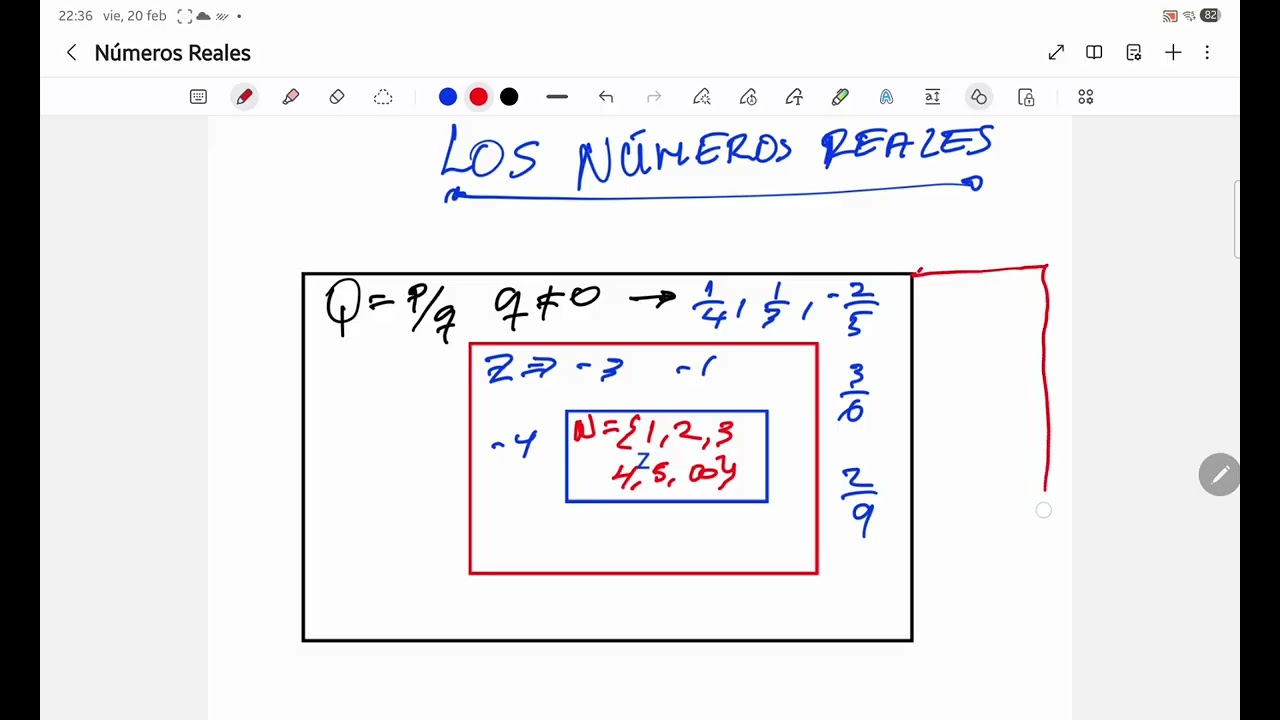 22:36 vie, 20 feb
82
Números Reales
LOS NÚMEROS REALES
Q = P/q q ≠ 0 → 1/4, 1/5, -2/5
Z ⇒ -3 -1
3/6
-4
N = {1, 2, 3
Z
4, 5, ∞}
2/9